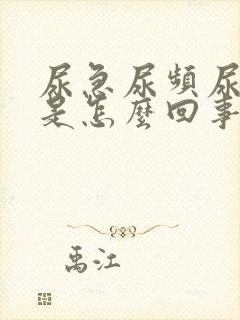 尿急尿頻尿
是怎麼回事
禹江